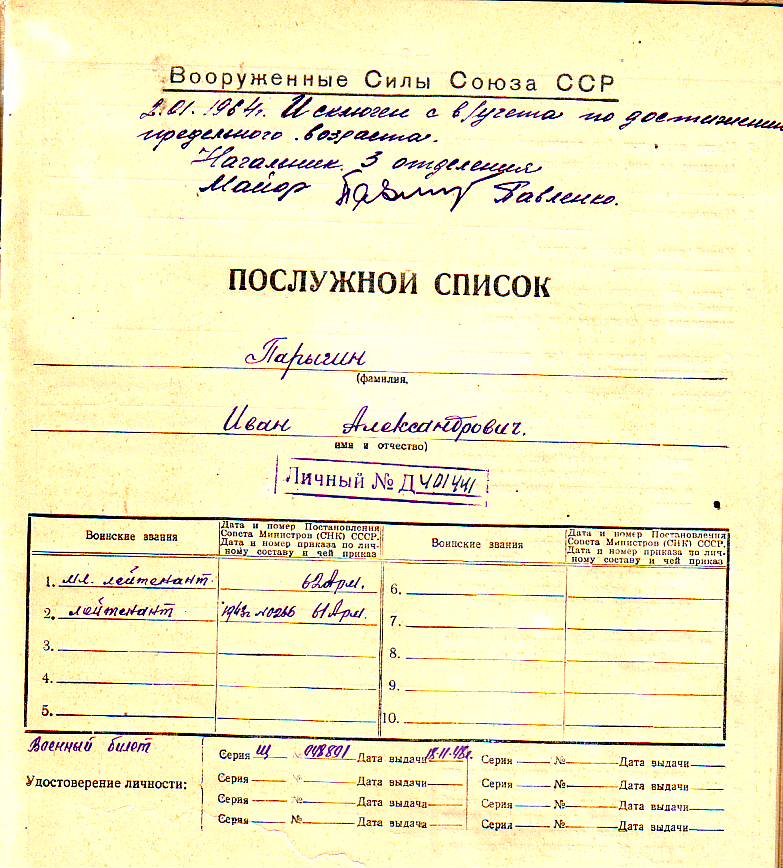 Вооруженные Силы Союза ССР
2.01.1964г. Исключен с в/учета по достижении
предельного возраста.
Начальник 3 отделения
Майор Павленко.
ПОСЛУЖНОЙ СПИСОК
Парыгин
(фамилия,
Иван Александрович.
имя и отчество)
Личный № Д 401441
Воинские звания
Дата и номер Постановления Совета Министров (СНК) СССР. Дата и номер приказа по личному составу и чей приказ
Воинские звания
Дата и номер Постановления Совета Министров (СНК) СССР. Дата и номер приказа по личному составу и чей приказ
1. мл. лейтенант. 62 Арм. 6.
2. лейтенант 1943г №0266 61 Арм. 7.
3. 8.
4. 9.
5. 10.
Военный билет
Серия Щ № 048801 Дата выдачи 18.11.48г. Серия № Дата выдачи
Удостоверение личности: Серия № Дата выдачи Серия № Дата выдачи
Серия № Дата выдача Серия № Дата выдачи
Серия № Дата выдача Серия № Дата выдачи